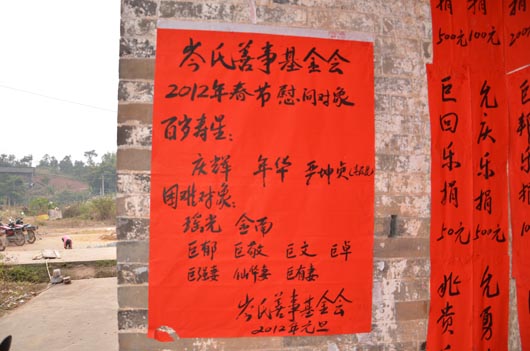 岑氏善事基金会
2012年春节慰问对象
百岁寿星:
庆辉 年华 严坤贞
困难对象:
瑶光 金南
巨郁 巨敬 巨文 巨卓
巨强妻 仙伦妻 巨有妻
岑氏善事基金会
2012年元旦
捐
500元
巨回乐捐
50元
兆贵
捐
100元
允庆乐捐
50元
允勇
200
巨邦